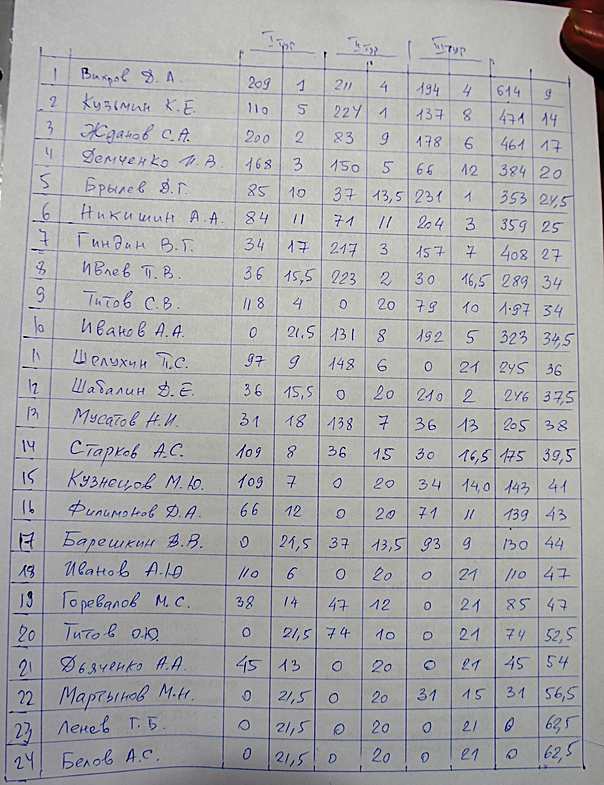 I тур II тур III тур
1 Вихров Д. А. 209 1 211 4 194 4 614 9
2 Кузьмин К.Е. 110 5 224 1 137 8 471 14
3 Жданов С.А. 200 2 83 9 178 6 461 17
4 Демченко И.В. 168 3 150 5 66 12 384 20
5 Брылев Д.Г. 85 10 37 13,5 231 1 353 24,5
6 Никишин А.А. 84 11 71 11 204 3 359 25
7 Гиндин В.Г. 34 17 217 3 157 7 408 27
8 Ивлев П.В. 36 15,5 223 2 30 16,5 289 34
9 Титов С.В. 118 4 0 20 79 10 197 34
10 Иванов А.А. 0 21,5 131 8 192 5 323 34,5
11 Шелухин П.С. 97 9 148 6 0 21 245 36
12 Шабалин Д.Е. 36 15,5 0 20 210 2 246 37,5
13 Мусатов Н.И. 31 18 138 7 36 13 205 38
14 Старков А.С. 109 8 36 15 30 16,5 175 39,5
15 Кузнецов М.Ю. 109 7 0 20 34 14,0 143 41
16 Филимонов Д.А. 66 12 0 20 71 11 139 43
17 Барешкин В.В. 0 21,5 37 13,5 93 9 130 44
18 Иванов А.Ю 110 6 0 20 0 21 110 47
19 Горевалов М.С. 38 14 47 12 0 21 85 47
20 Титов О.Ю. 0 21,5 74 10 0 21 74 52,5
21 Дьяченко А.А. 45 13 0 20 0 21 45 54
22 Мартынов М.Н. 0 21,5 0 20 31 15 31 56,5
23 Ленев Г.Б. 0 21,5 0 20 0 21 0 62,5
24 Белов А.С. 0 21,5 0 20 0 21 0 62,5